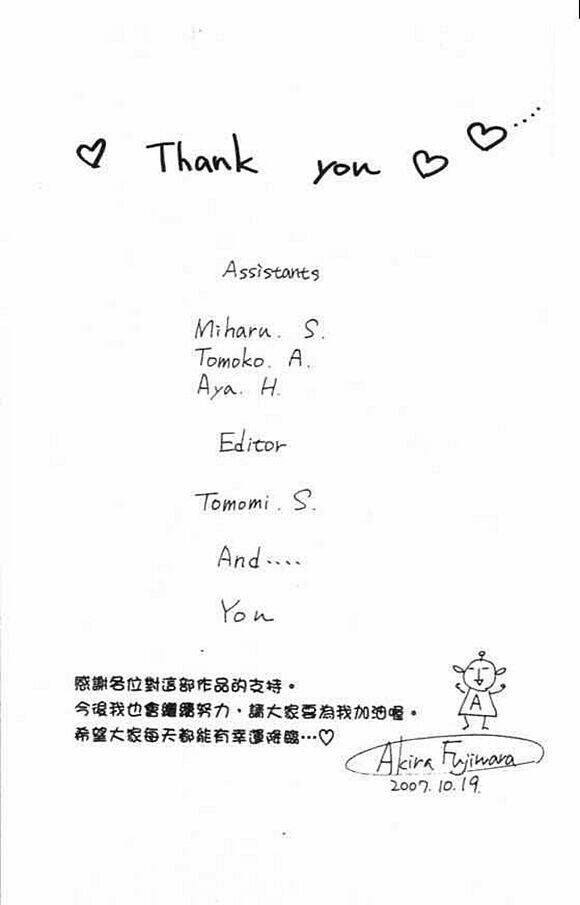 ♡ Thank you ♡ ♡....
Assistants
Miharu. S.
Tomoko. A.
Aya. H.
Editor
Tomomi. S.
And....
You
感謝各位對這部作品的支持。
今後我也會繼續努力、請大家要為我加油喔。
希望大家每天都能有幸運降臨…♡
A
Akira Fujiwara
2007.10.19.